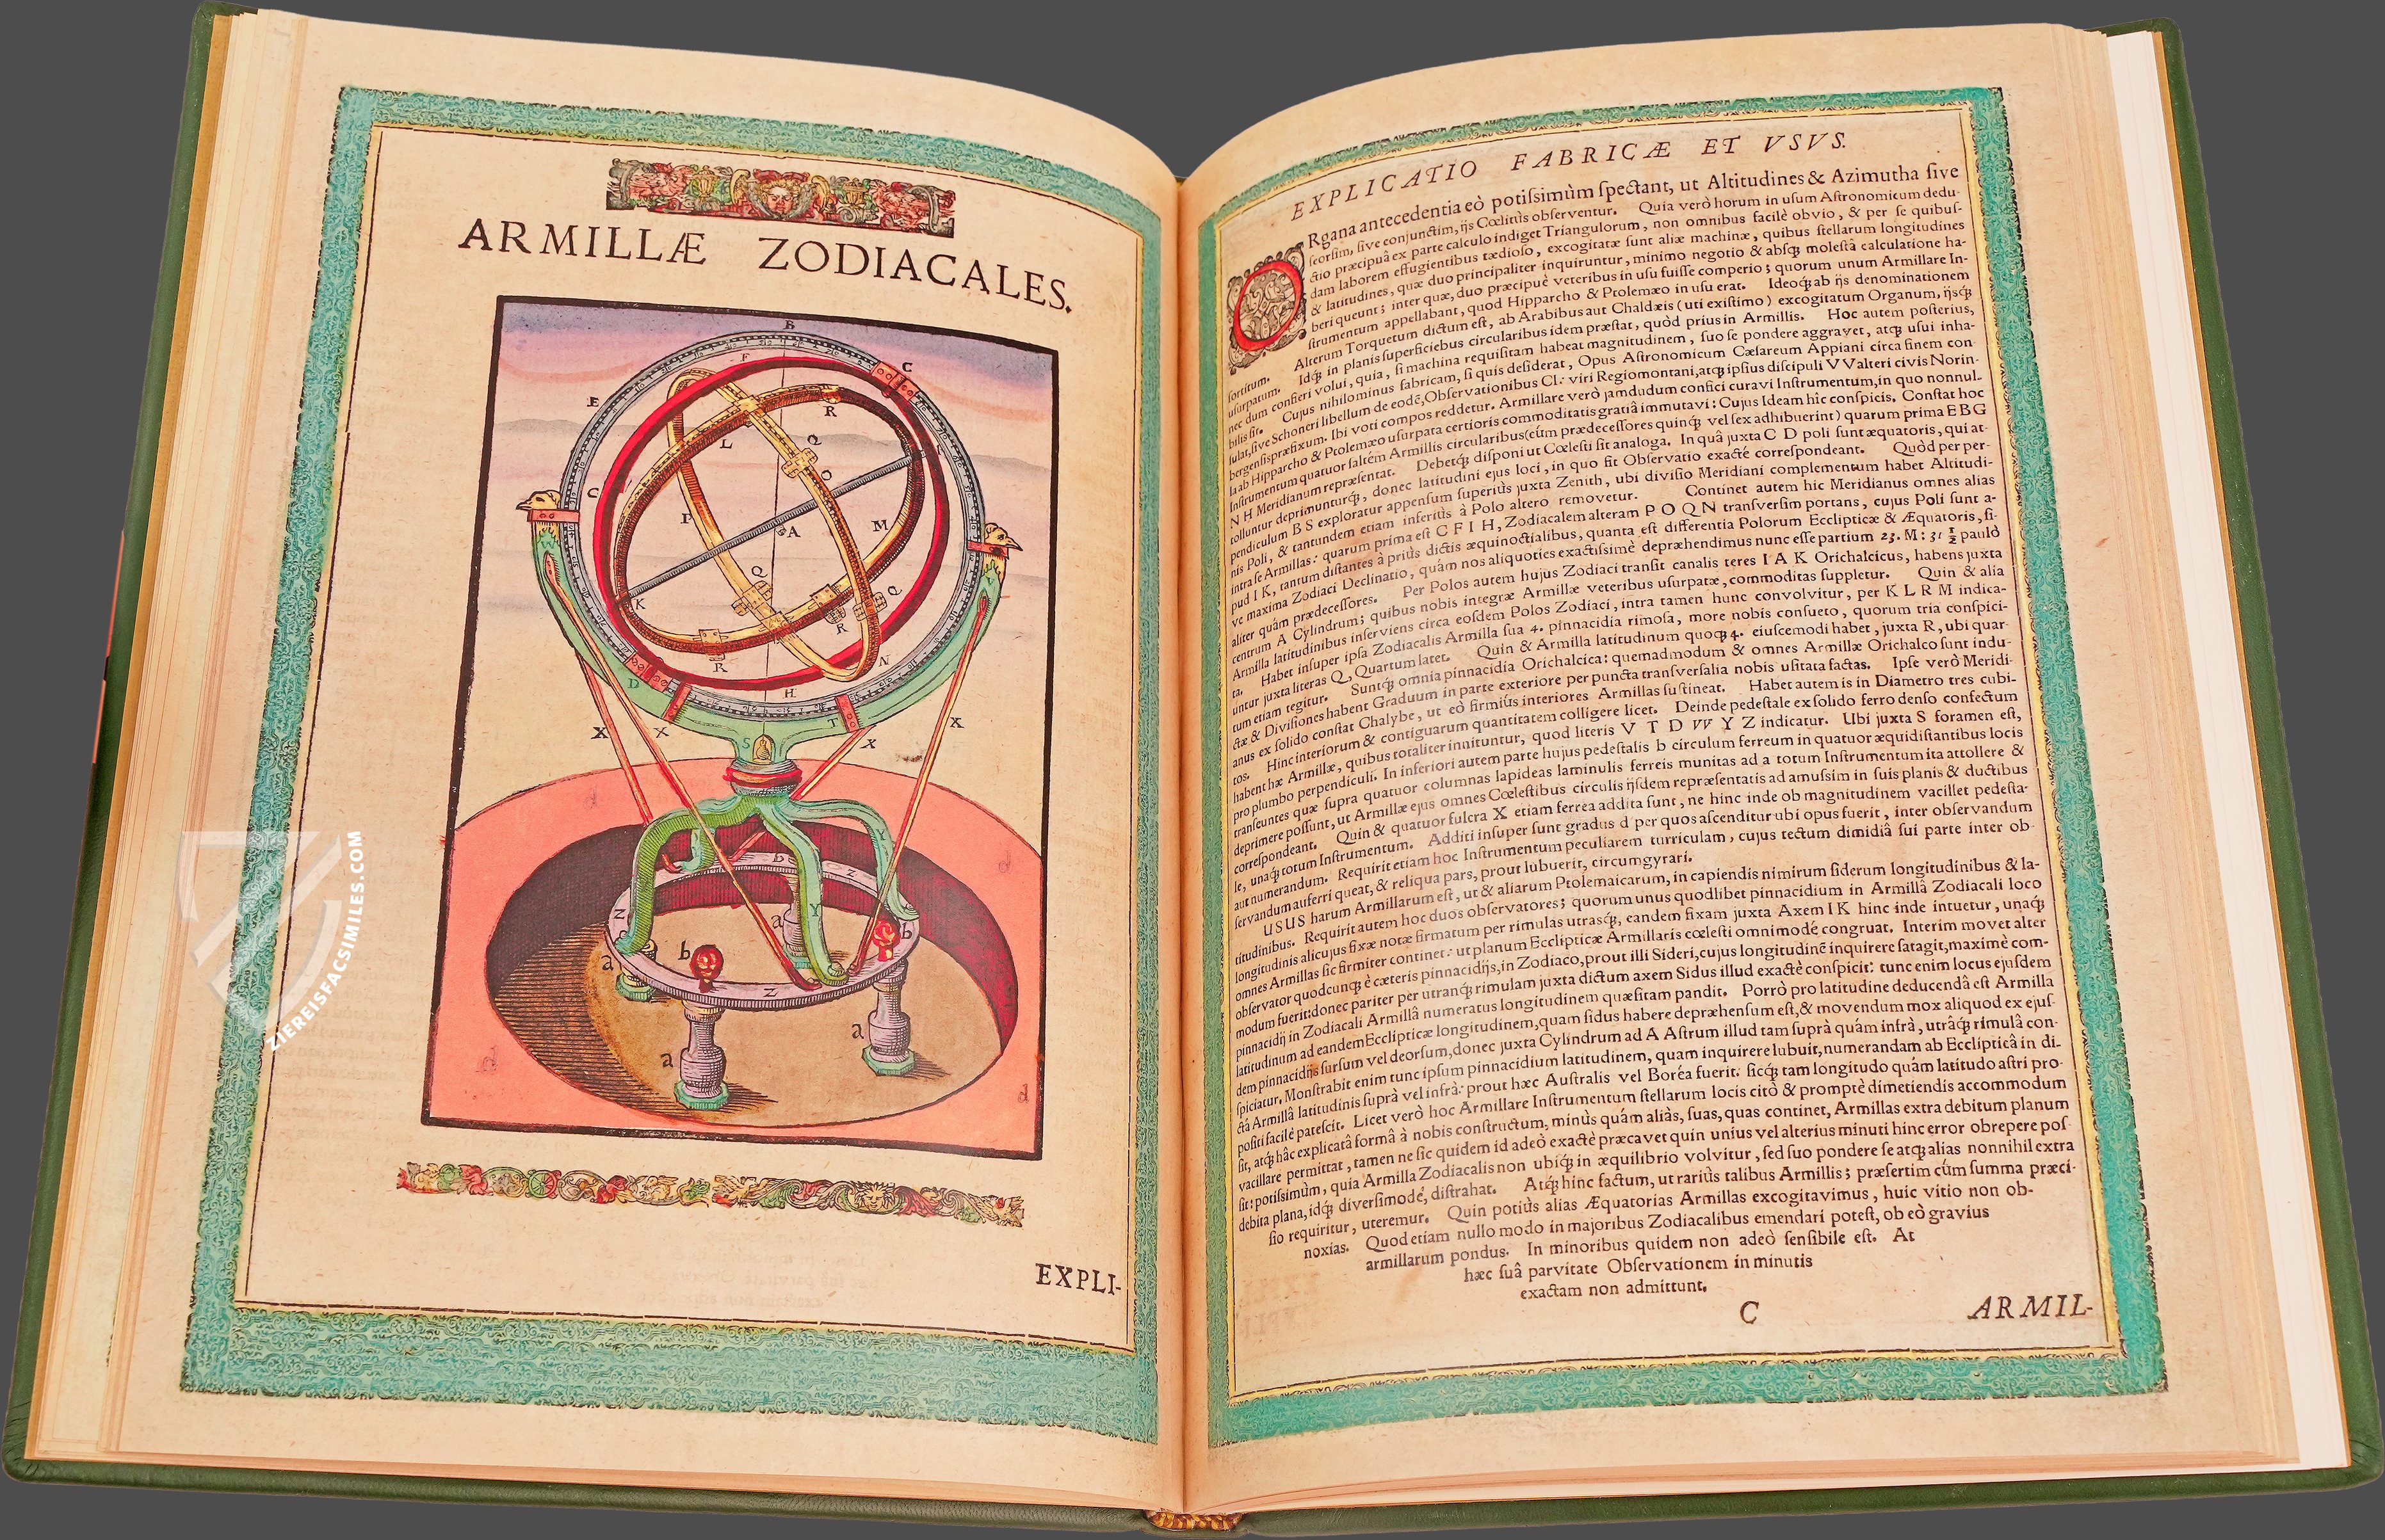 ARMILLÆ ZODIACALES.
B
C
F
E
R
L
Q
O
C
P
A
M
Q
K
Q
R
R
N
D
H
T
X
X
S
X
X
b
Z
Y
N
a
b
a
b
Z
a
a
d
d
d
EXPLI-
ZIEREISFACSIMILES.COM
EXPLICATIO FABRICÆ ET VSVS.
ORgana antecedentia eò potiſsimùm ſpectant, ut Altitudines & Azimutha ſive
ſeorſim, ſive conjunctim, ijs Cœlitùs obſerventur. Quia verò horum in uſum Aſtronomicum dedu-
ctio præcipuâ ex parte calculo indiget Triangulorum, non omnibus facilè obvio, & per ſe quibuſ-
dam laborem effugientibus tædioſo, excogitatæ ſunt aliæ machinæ, quibus ſtellarum longitudines
& latitudines, quæ duo principaliter inquiruntur, minimo negotio & abſq; moleſtâ calculatione ha-
beri queunt; inter quæ, duo præcipuè veteribus in uſu fuiſſe comperio; quorum unum Armillare In-
ſtrumentum appellabant, quod Hipparcho & Ptolemæo in uſu erat. Ideoq; ab ijs denominationem
ſortitum. Alterum Torquetum dictum eſt, ab Arabibus aut Chaldæis (uti exiſtimo) excogitatum Organum, ijsq;
uſurpatum. Idq; in planis ſuperficiebus circularibus idem præſtat, quòd prius in Armillis. Hoc autem poſterius,
nec dum confieri volui, quia, ſi machina requiſitam habeat magnitudinem, ſuo ſe pondere aggravet, atq; uſui inha-
bilis ſit. Cujus nihilominus fabricam, ſi quis deſiderat, Opus Aſtronomicum Cæſareum Appiani circa finem con-
ſulat, ſive Schoneri libellum de eodē, Obſervationibus Cl: viri Regiomontani, atq; ipſius diſcipuli VValteri civis Norin-
bergenſis præfixum. Ibi voti compos reddetur. Armillare verò jamdudum confici curavi Inſtrumentum, in quo nonnul-
la ab Hipparcho & Ptolemæo uſurpata certioris commoditatis gratiâ immutavi: Cujus Ideam hîc conſpicis. Conſtat hoc
Inſtrumentum quatuor ſaltém Armillis circularibus (cùm prædeceſſores quinq; vel ſex adhibuerint) quarum prima E B G
N H Meridianum repræſentat. Debetq; diſponi ut Cœleſti ſit analoga. In quâ juxta C D poli ſunt æquatoris, qui at-
tolluntur deprimunturq;, donec latitudini ejus loci, in quo fit Obſervatio exactè correſpondeant. Quòd per per-
pendiculum B S exploratur appenſum ſuperiùs juxta Zenith, ubi diviſio Meridiani complementum habet Altitudi-
nis Poli, & tantundem etiam inferiùs à Polo altero removetur. Continet autem hic Meridianus omnes alias
intra ſe Armillas: quarum prima eſt C F I H, Zodiacalem alteram P O Q N tranſverſim portans, cujus Poli ſunt a-
pud I K, tantum diſtantes à priùs dictis æquinoctialibus, quanta eſt differentia Polorum Ecclipticæ & Æquatoris, ſi-
ve maxima Zodiaci Declinatio, quàm nos aliquoties exactiſsimè depræhendimus nunc eſſe partium 23. M: 31 ½ paulò
aliter quàm prædeceſſores. Per Polos autem hujus Zodiaci tranſit canalis teres I A K Orichalcicus, habens juxta
centrum A Cylindrum; quibus nobis integræ Armillæ veteribus uſurpatæ, commoditas ſuppletur. Quin & alia
Armilla latitudinibus inſerviens circa eoſdem Polos Zodiaci, intra tamen hunc convolvitur, per K L R M indica-
ta. Habet inſuper ipſa Zodiacalis Armilla ſua 4. pinnacidia rimoſa, more nobis conſueto, quorum tria conſpici-
untur juxta literas Q, Quartum latet. Quin & Armilla latitudinum quoq; 4. eiuſcemodi habet, juxta R, ubi quar-
tum etiam tegitur. Suntq; omnia pinnacidia Orichalcica: quemadmodum & omnes Armillæ Orichalco ſunt indu-
ctæ & Diviſiones habent Graduum in parte exteriore per puncta tranſverſalia nobis uſitata factas. Ipſe verò Meridi-
anus ex ſolido conſtat Chalybe, ut eò firmiùs interiores Armillas ſuſtineat. Habet autem is in Diametro tres cubi-
tos. Hinc interiorum & contiguarum quantitatem colligere licet. Deinde pedeſtale ex ſolido ferro denſo confectum
habent hæ Armillæ, quibus totaliter innituntur, quod literis V T D W Y Z indicatur. Ubi juxta S foramen eſt,
pro plumbo perpendiculi. In inferiori autem parte hujus pedeſtalis b circulum ferreum in quatuor æquidiſtantibus locis
tranſeuntes quæ ſupra quatuor columnas lapideas laminulis ferreis munitas ad a totum Inſtrumentum ita attollere &
deprimere poſſunt, ut Armillæ ejus omnes Cœleſtibus circulis ijſdem repræſentatis ad amuſsim in ſuis planis & ductibus
correſpondeant. Quin & quatuor fulcra X etiam ferrea addita ſunt, ne hinc inde ob magnitudinem vacillet pedeſta-
le, unaq; totum Inſtrumentum. Additi inſuper ſunt gradus d per quos aſcenditur ubi opus fuerit, inter obſervandum
aut numerandum. Requirit etiam hoc Inſtrumentum peculiarem turriculam, cujus tectum dimidiâ ſui parte inter ob-
ſervandum auferri queat, & reliqua pars, prout lubuerit, circumgyrari.
USUS harum Armillarum eſt, ut & aliarum Ptolemaicarum, in capiendis nimirum ſiderum longitudinibus & la-
titudinibus. Requirit autem hoc duos obſervatores; quorum unus quodlibet pinnacidium in Armillâ Zodiacali loco
longitudinis alicujus fixæ notæ firmatum per rimulas utrasq;, eandem fixam juxta Axem I K hinc inde intuetur, unaq;
omnes Armillas ſic firmiter continet: ut planum Ecclipticæ Armillaris cœleſti omnimodè congruat. Interim movet alter
obſervator quodcunq; è cæteris pinnacidijs, in Zodiaco, prout illi Sideri, cujus longitudinē inquirere ſatagit, maximè com-
modum fuerit: donec pariter per utranq; rimulam juxta dictum axem Sidus illud exactè conſpicit: tunc enim locus ejuſdem
pinnacidij in Zodiacali Armillâ numeratus longitudinem quæſitam pandit. Porrò pro latitudine deducendâ eſt Armilla
latitudinum ad eandem Ecclipticæ longitudinem, quam ſidus habere depræhenſum eſt, & movendum mox aliquod ex ejuſ-
dem pinnacidijs ſurſum vel deorſum, donec juxta Cylindrum ad A Aſtrum illud tam ſuprà quàm infrà, utrâq; rimulâ con-
ſpiciatur. Monſtrabit enim tunc ipſum pinnacidium latitudinem, quam inquirere lubuit, numerandam ab Ecclipticâ in di-
ctâ Armillâ latitudinis ſuprà vel infrà: prout hæc Auſtralis vel Boréa fuerit: ſicq; tam longitudo quàm latitudo aſtri pro-
poſiti facilè pateſcit. Licet verò hoc Armillare Inſtrumentum ſtellarum locis citò & promptè dimetiendis accommodum
ſit, atq; hâc explicatâ formâ à nobis conſtructum, minùs quàm aliàs, ſuas, quas continet, Armillas extra debitum planum
vacillare permittat, tamen ne ſic quidem id adeò exactè præcavet quin unius vel alterius minuti hinc error obrepere poſ-
ſit: potiſsimùm, quia Armilla Zodiacalis non ubiq; in æquilibrio volvitur, ſed ſuo pondere ſe atq; alias nonnihil extra
debita plana, idq; diverſimodè, diſtrahat. Atq; hinc factum, ut rariùs talibus Armillis; præſertim cùm ſumma præci-
ſio requiritur, uteremur. Quin potiùs alias Æquatorias Armillas excogitavimus, huic vitio non ob-
noxias. Quod etiam nullo modo in majoribus Zodiacalibus emendari poteſt, ob eò gravius
armillarum pondus. In minoribus quidem non adeò ſenſibile eſt. At
hæc ſuâ parvitate Obſervationem in minutis
exactam non admittunt.
C
ARMIL-